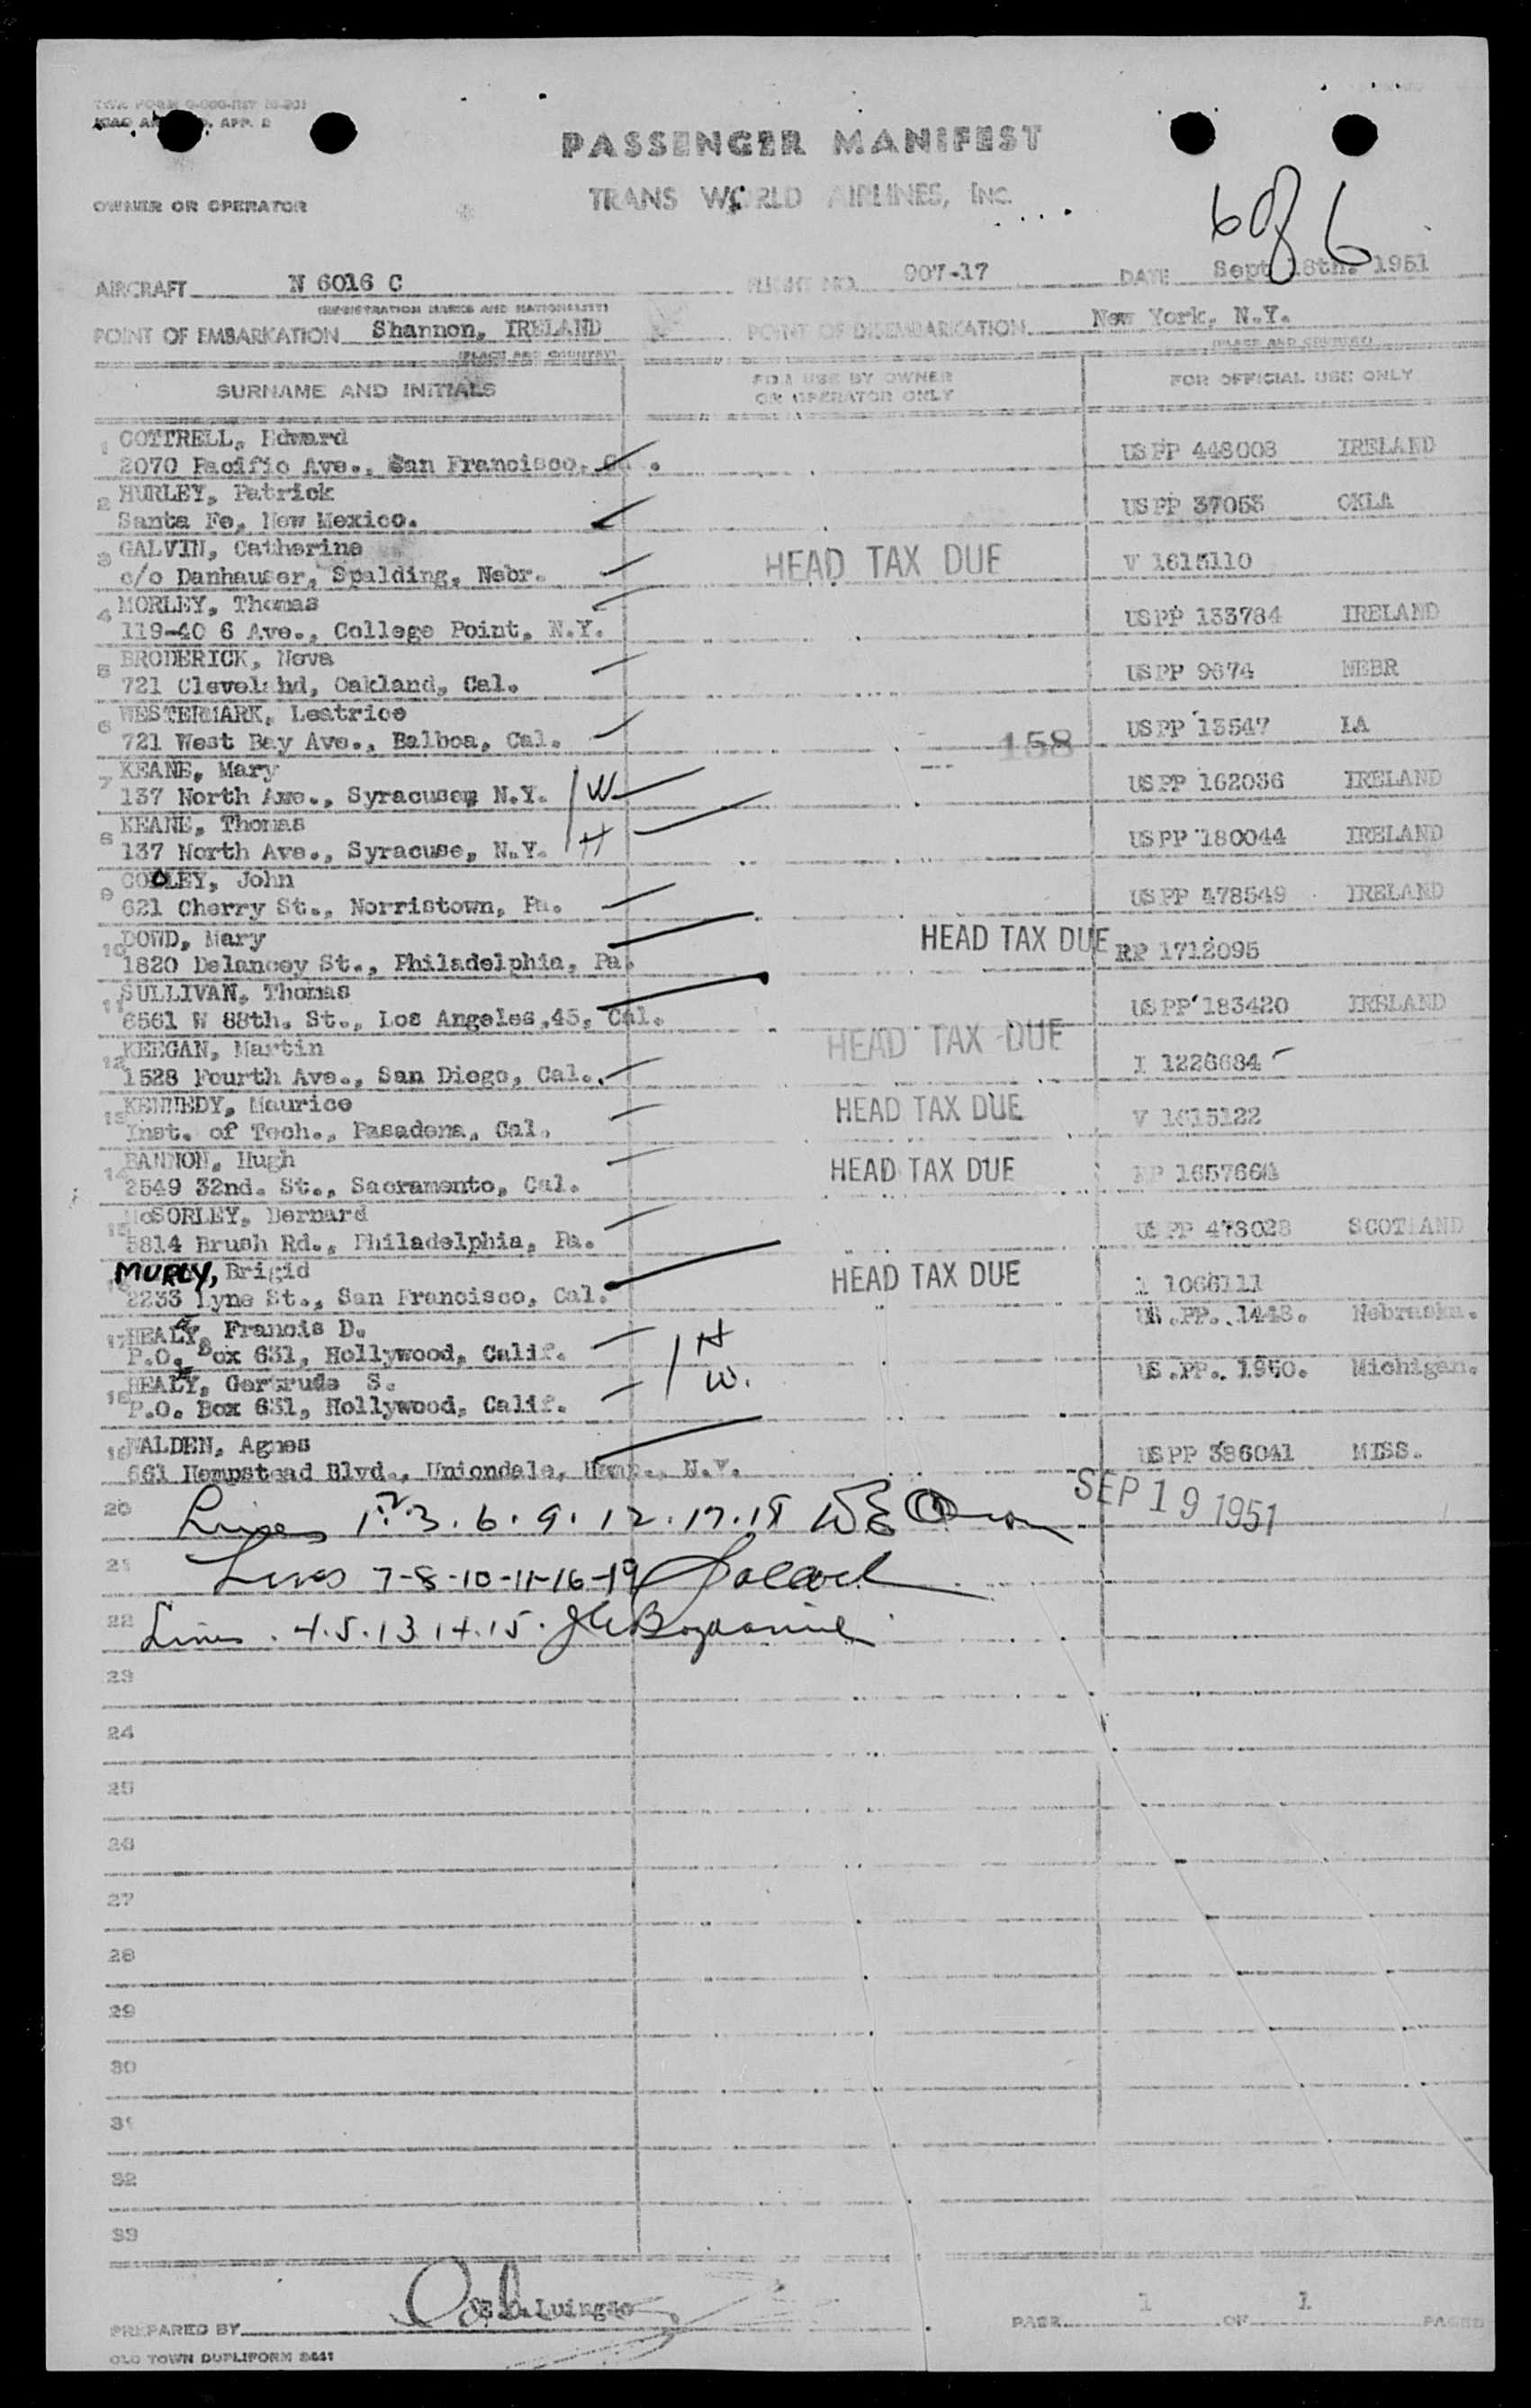 PASSENGER MANIFEST
OWNER OR OPERATOR TRANS WORLD AIRLINES, INC.
6 of 6
AIRCRAFT N 6016 C FLIGHT NO. 907-17 DATE Sept 18th. 1951
(REGISTRATION MARKS AND NATIONALITY)
POINT OF EMBARKATION Shannon, IRELAND POINT OF DISEMBARKATION New York, N.Y.
(PLACE AND COUNTRY) (PLACE AND COUNTRY)
SURNAME AND INITIALS FOR USE BY OWNER OR OPERATOR ONLY FOR OFFICIAL USE ONLY
1 COTTRELL, Edward US PP 448003 IRELAND
2070 Pacific Ave., San Francisco,
2 HURLEY, Patrick US PP 37053 OKLA
Santa Fe, New Mexico.
3 GALVIN, Catherine HEAD TAX DUE V 1615110
c/o Danhauser, Spalding, Nebr.
4 MORLEY, Thomas US PP 133784 IRELAND
119-40 6 Ave., College Point, N.Y.
5 BRODERICK, Nova US PP 9674 NEBR
721 Cleveland, Oakland, Cal.
6 WESTERMARK, Leatrice 158 US PP 13547 IA
721 West Bay Ave., Balboa, Cal.
7 KEANE, Mary W US PP 162036 IRELAND
137 North Ave., Syracuse, N.Y.
8 KEANE, Thomas H US PP 180044 IRELAND
137 North Ave., Syracuse, N.Y.
9 COOLEY, John US PP 478549 IRELAND
621 Cherry St., Norristown, Pa.
10 DOWD, Mary HEAD TAX DUE RP 1712095
1820 Delancey St., Philadelphia, Pa.
11 SULLIVAN, Thomas US PP 183420 IRELAND
6561 W 88th. St., Los Angeles,45, Cal.
12 KEEGAN, Martin HEAD TAX DUE I 1228684
1528 Fourth Ave., San Diego, Cal.
13 KENNEDY, Maurice HEAD TAX DUE V 1615122
Inst. of Tech., Pasadena, Cal.
14 BANNON, Hugh HEAD TAX DUE RP 1657664
2549 32nd. St., Sacramento, Cal.
15 McSORLEY, Bernard US PP 473028 SCOTLAND
5814 Brush Rd., Philadelphia, Pa.
16 Brigid HEAD TAX DUE I 1066111
2233 Lyne St., San Francisco, Cal.
17 HEALY, Francis D. H US.PP. 1448. Nebraska.
P.O. Box 631, Hollywood, Calif.
18 HEALY, Gertrude S. W. US.PP. 1950. Michigan.
P.O. Box 631, Hollywood, Calif.
19 WALDEN, Agnes US PP 386041 MISS.
661 Hempstead Blvd., Uniondale, N.Y.
SEP 19 1951
20 Lines 1.2.3.6.9.12.17.18
21 Lines 7-8-10-11-16-19
22 Lines 4.5.13.14.15.
23
24
25
26
27
28
29
30
31
32
33
PREPARED BY PAGE 1 OF 1 PAGES
OLD TOWN DUPLIFORM